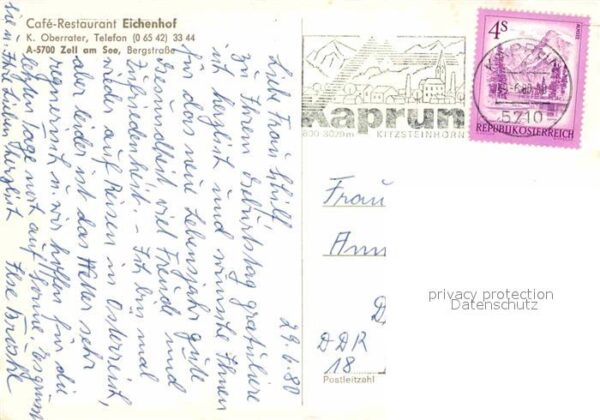 Café-Restaurant Eichenhof
K. Oberrater, Telefon (0 65 42) 33 44
A-5700 Zell am See, Bergstraße
Liebe Frau
Zu Ihrem Geburtstag gratuliere
ich herzlich und wünsche Ihnen
für das neue Lebensjahr gute
Gesundheit viel Freude und
Zufriedenheit. - Ich bin mal
wieder auf Reisen in Österreich,
aber leider ist das Wetter sehr
regnerisch u. wir hoffen für die
letzten Tage noch auf Sonne. Es grüsst
Sie u. Ihre Lieben herzlichst Ilse
29.6.80
Kaprun
800-3029m KITZSTEINHORN
KAPRUN
5710
4S
REPUBLIK ÖSTERREICH
Frau
D
DDR
18
Postleitzahl
privacy protection
Datenschutz